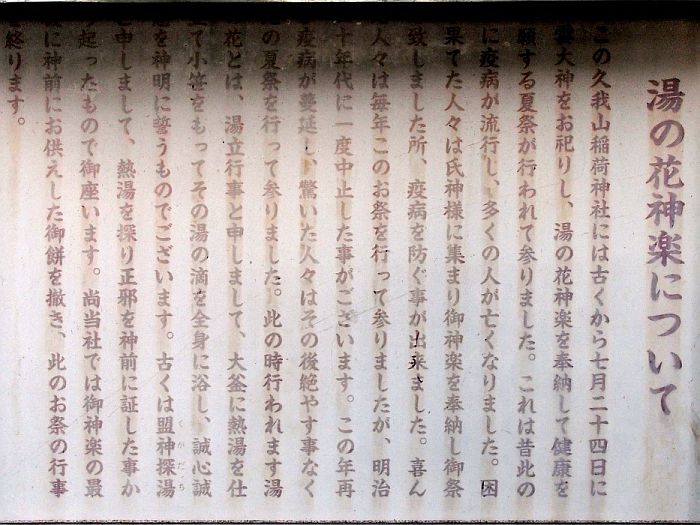 湯の花神楽について
この久我山稲荷神社には古くから七月二十四日に
大神をお祀りし、湯の花神楽を奉納して健康を
願する夏祭が行われて参りました。これは昔此の
に疫病が流行し、多くの人が亡くなりました。困
果てた人々は氏神様に集まり御神楽を奉納し御祭
致しました所、疫病を防ぐ事が出来ました。喜ん
人々は毎年このお祭を行って参りましたが、明治
十年代に一度中止した事がございます。この年再
疫病が蔓延し、驚いた人々はその後絶やす事なく
の夏祭を行って参りました。此の時行われます湯
花とは、湯立行事と申しまして、大釜に熱湯を仕
て小笹をもってその湯の滴を全身に浴し、誠心誠
を神明に誓うものでございます。古くは盟神探湯
と申しまして、熱湯を探り正邪を神前に証した事か
起ったもので御座います。尚当社では御神楽の最
に神前にお供えした御餅を撤き、此のお祭の行事
終ります。